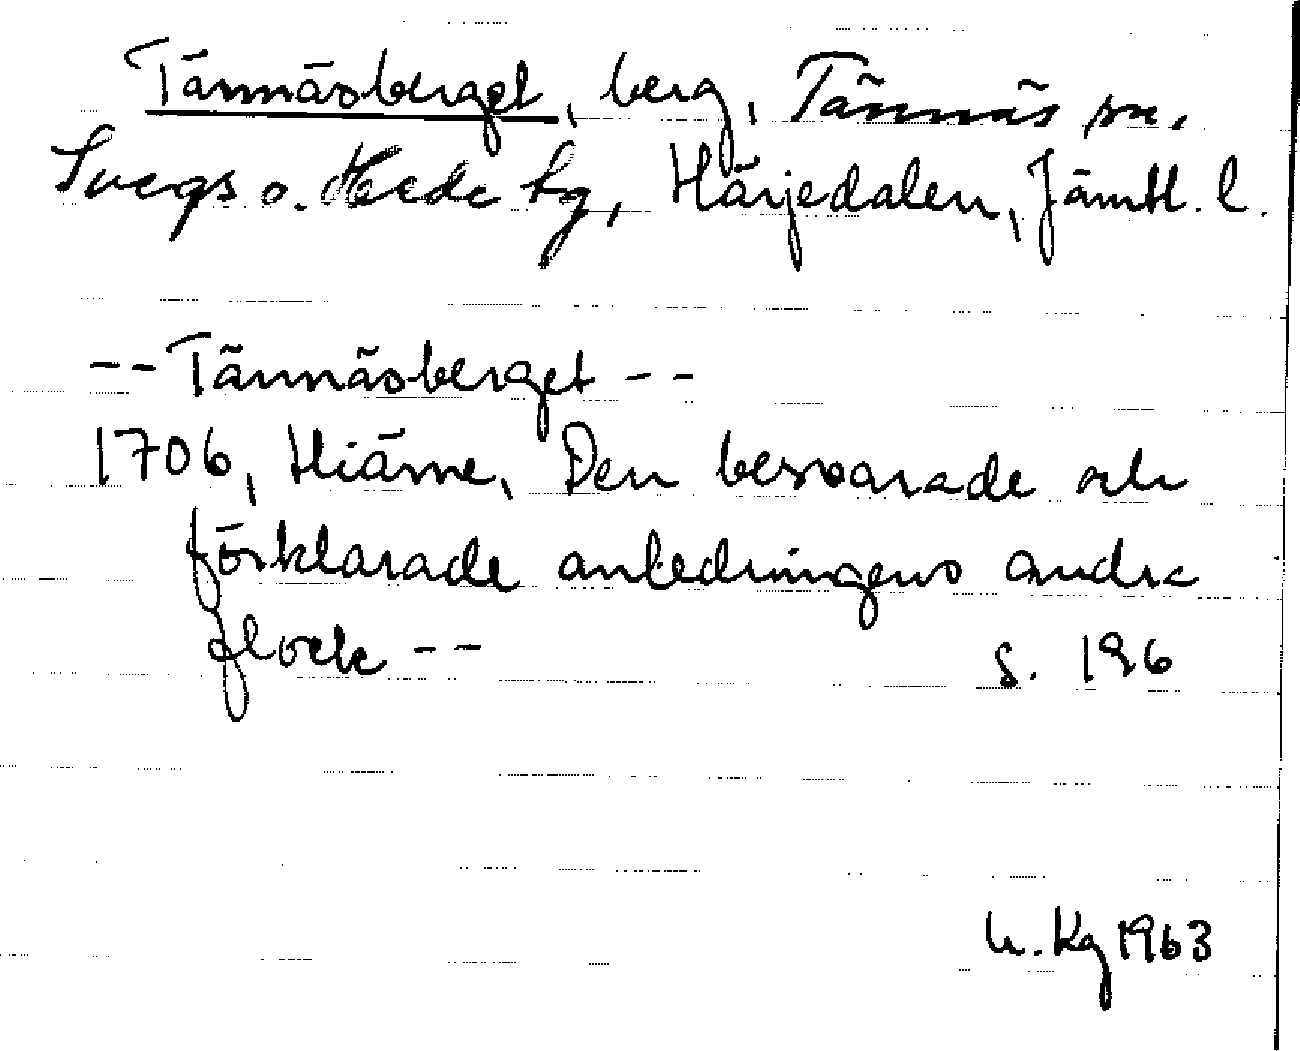 Tännäsberget, berg, Tännäs sn,
Svegs o. Hede tg, Härjedalen, Jämtl. l.
-- Tännäsberget --
1706, Hiärne, Den besvarade och
förklarade anledningens andra
flock -- s. 196
U. Kg 1963